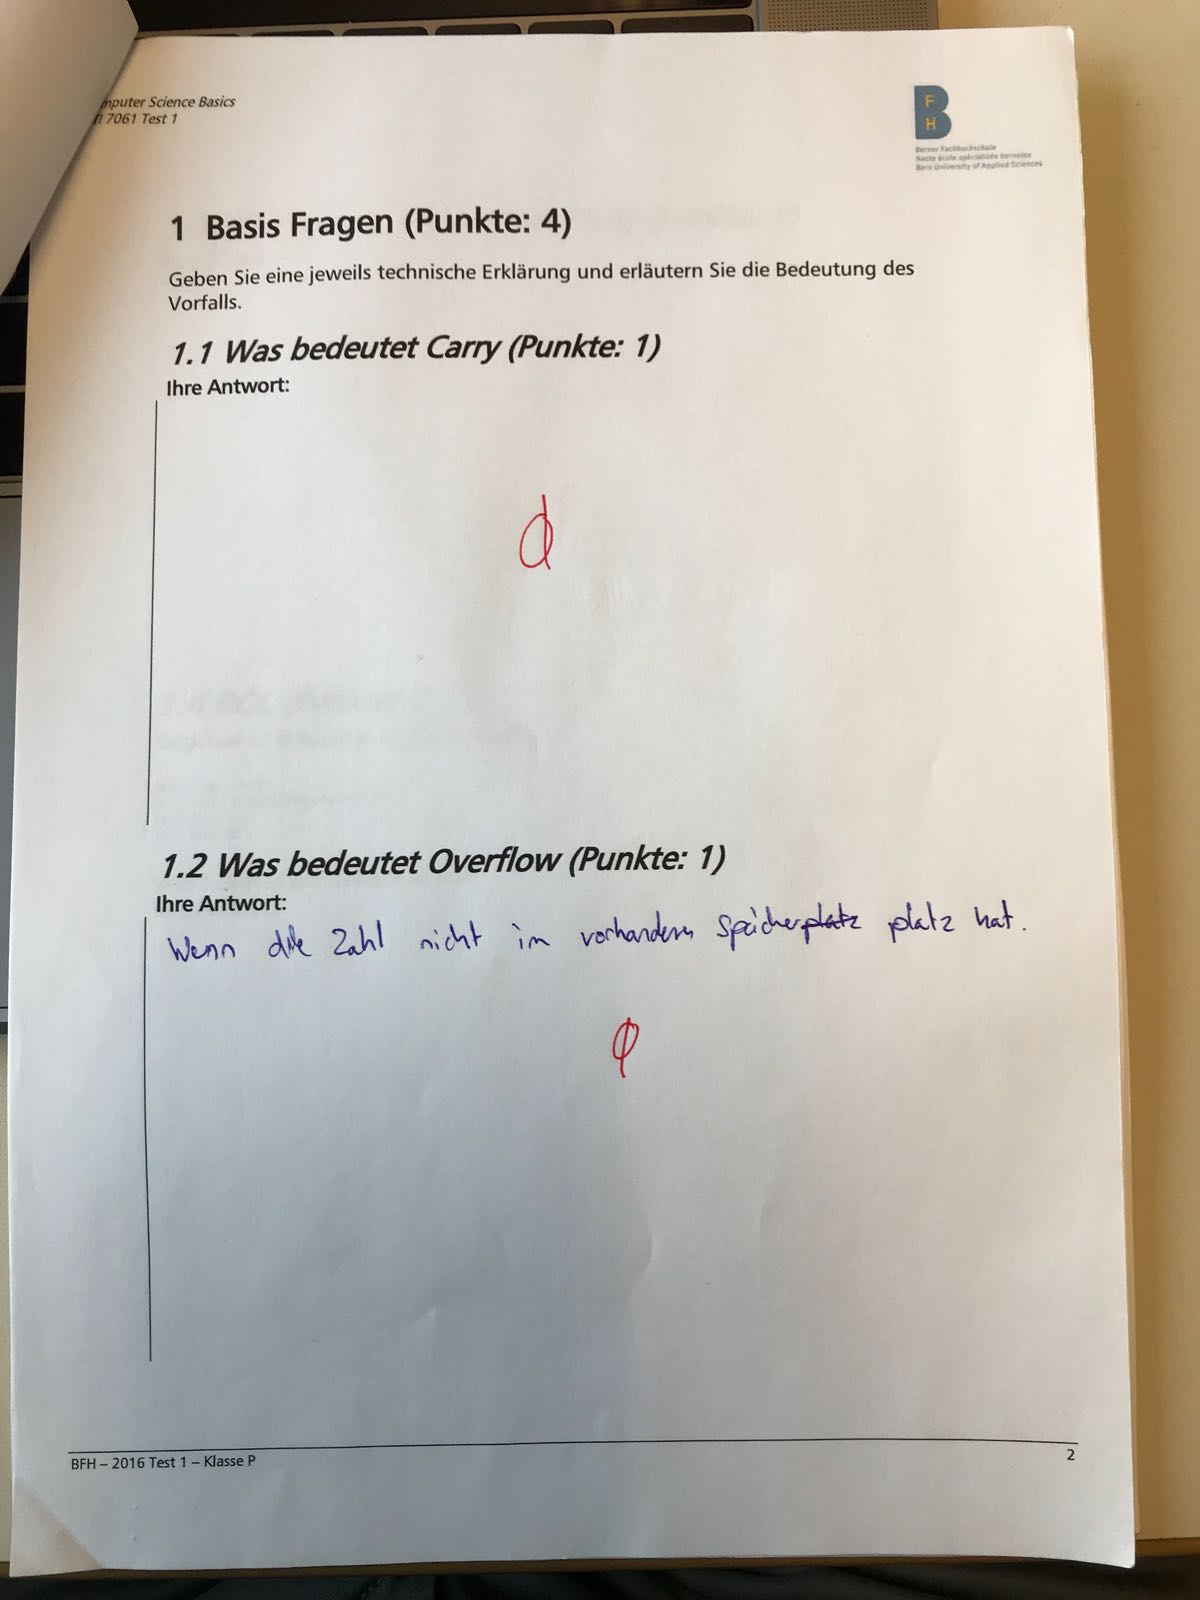 mputer Science Basics
7061 Test 1
F
B
H
Berner Fachhochschule
Haute école spécialisée bernoise
Bern University of Applied Sciences
1 Basis Fragen (Punkte: 4)
Geben Sie eine jeweils technische Erklärung und erläutern Sie die Bedeutung des
Vorfalls.
1.1 Was bedeutet Carry (Punkte: 1)
Ihre Antwort:
1.2 Was bedeutet Overflow (Punkte: 1)
Ihre Antwort:
Wenn die Zahl nicht im vorhandern Speicherplatz platz hat.
BFH – 2016 Test 1 – Klasse P
2